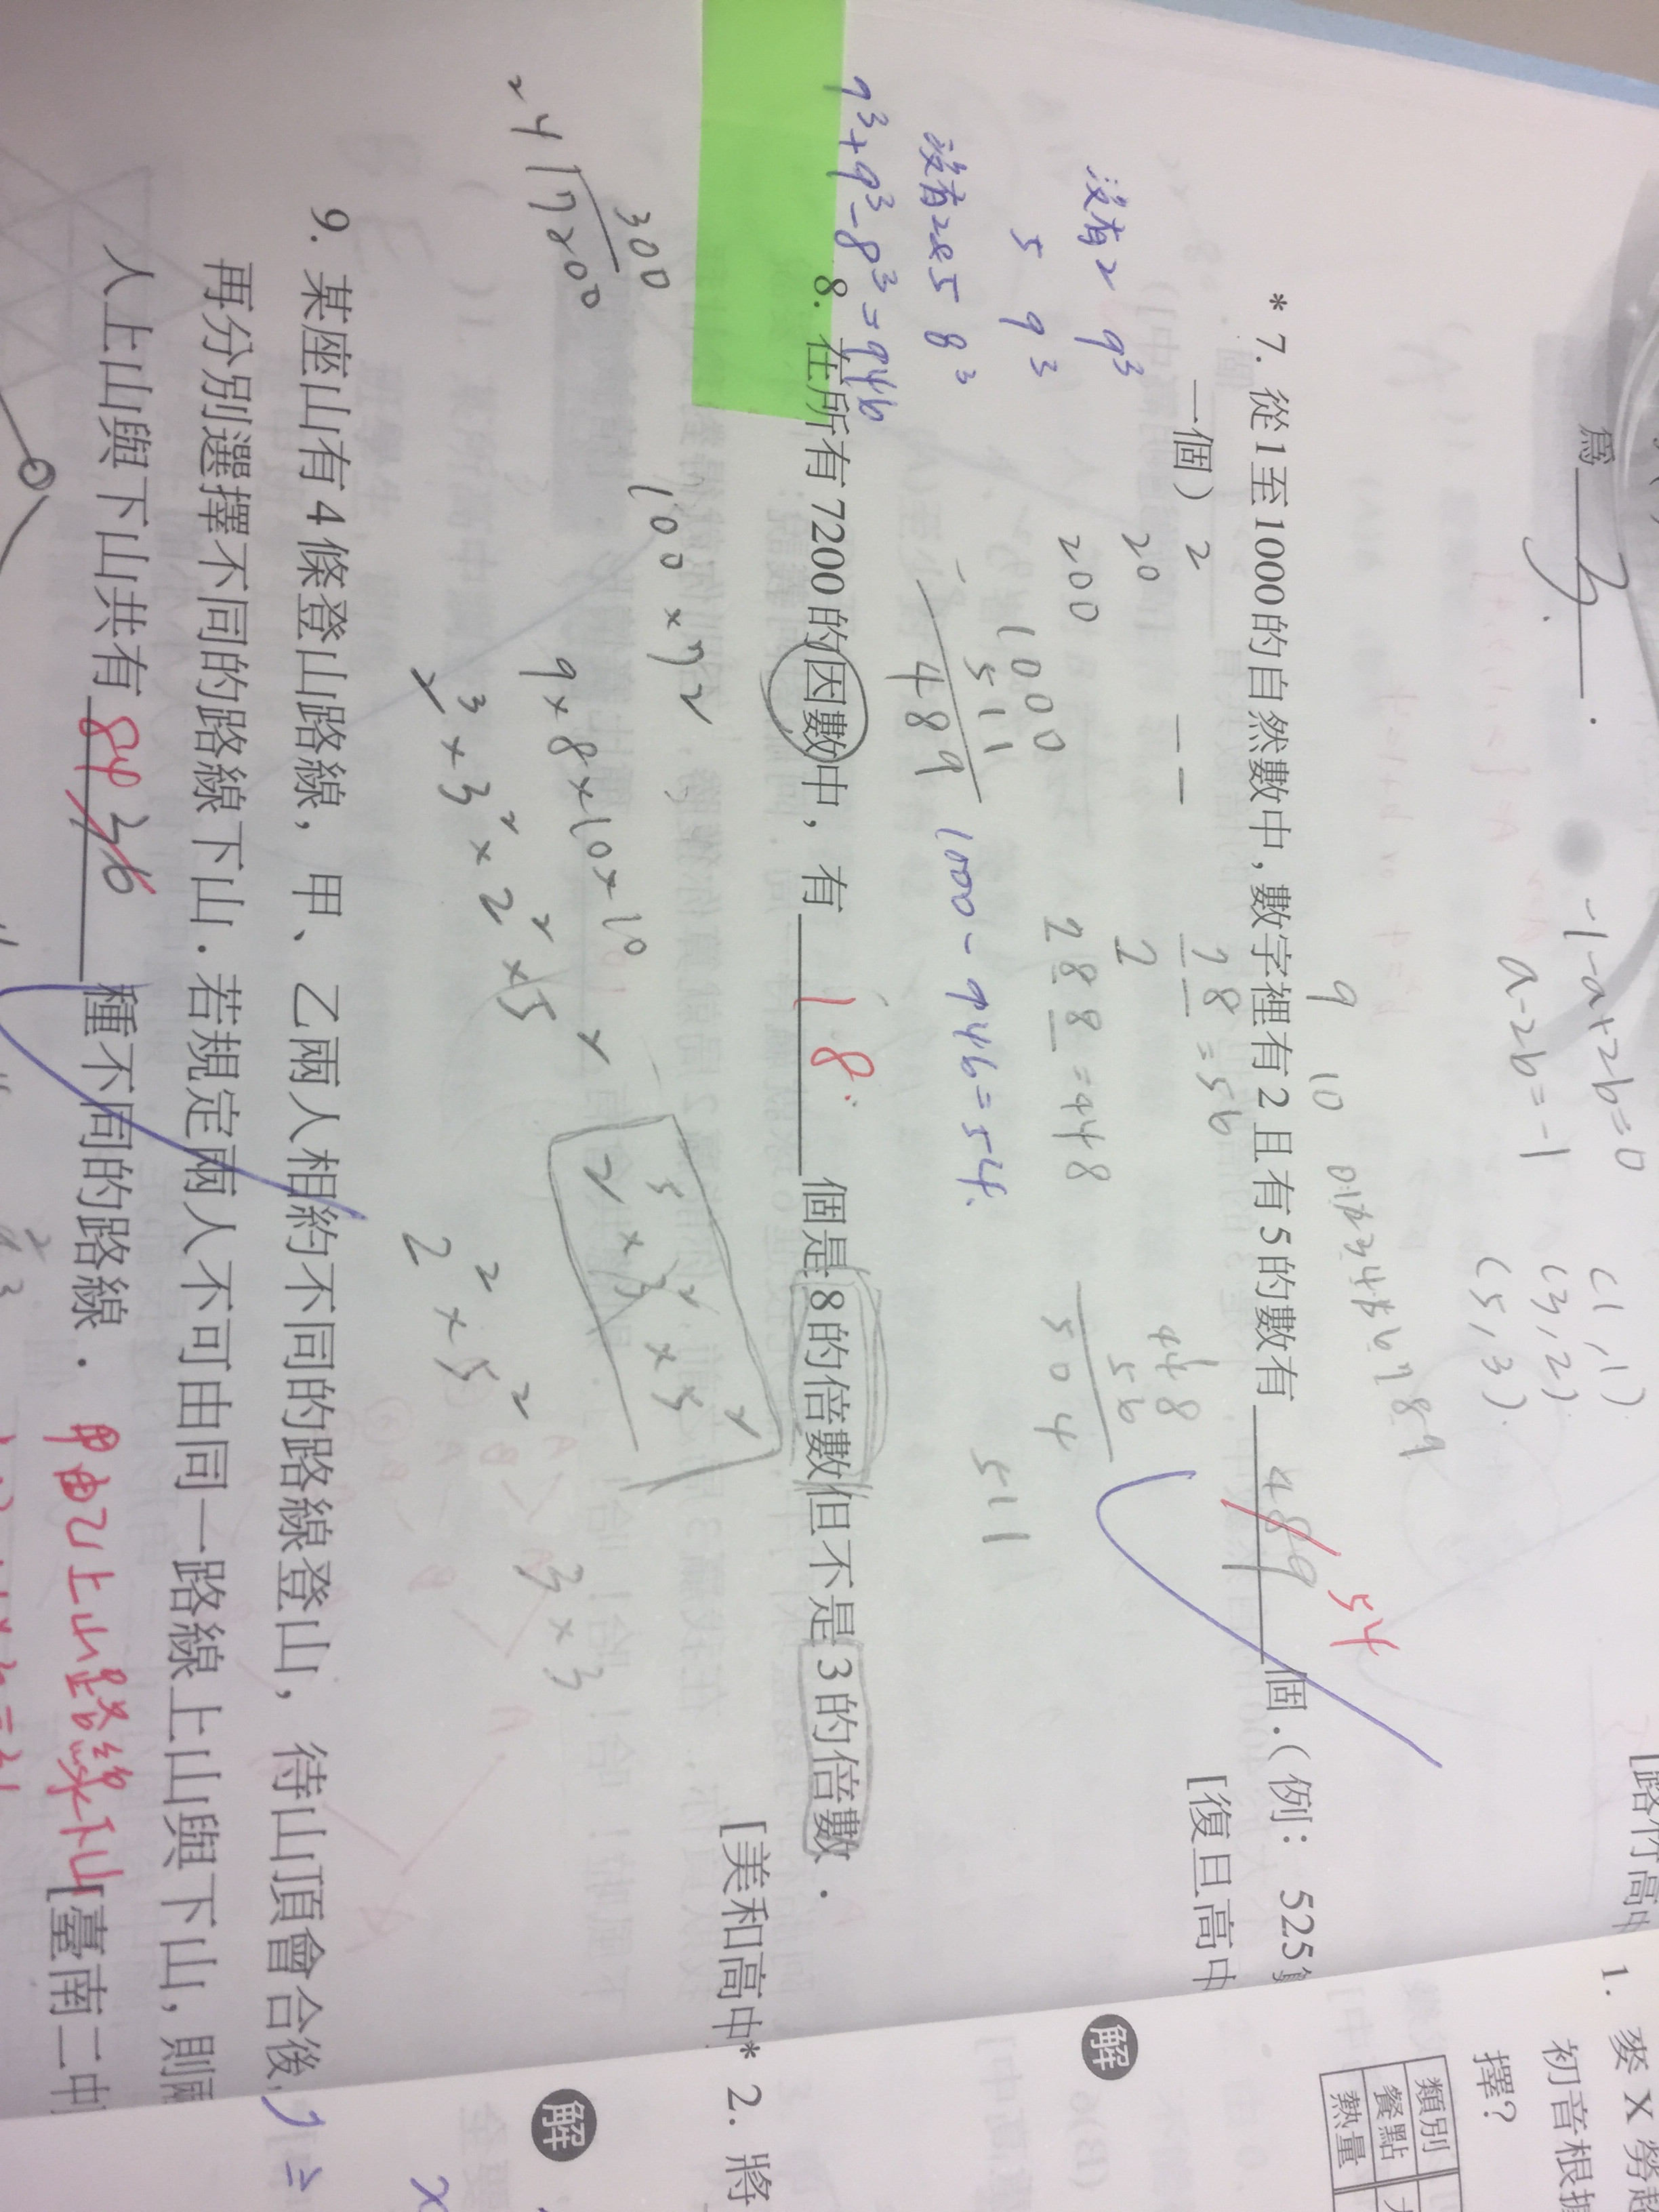 為 3 .
-1-a+2b=0
a-2b=-1
(1,1)
(3,2)
(5,3)
[路竹高中
9 10
* 7. 從1至1000的自然數中,數字裡有2且有5的數有 489 個.(例：525算
54
一個)
[復旦高中
沒有2 9³
5 9³
沒有2&5 8³
9³+9³-8³=946
2
20
200
28=56
2
288=448
448
56
504
511
1000
511
489
1000-946=54.
8. 在所有7200的因數中，有 18 個是8的倍數但不是3的倍數.
[美和高中
300
24
7200
100×72
9×8×10×10
2³×3²×2²×5²
2⁵×3²×5²
2²×5²
3×3
9. 某座山有4條登山路線，甲、乙兩人相約不同的路線登山，待山頂會合後，
再分別選擇不同的路線下山.若規定兩人不可由同一路線上山與下山，則兩
人上山與下山共有 84 36 種不同的路線.
甲由乙上山路線下山
[臺南二中
1. 麥X勞超
初音根據
擇？
類別
餐點
熱量
解
* 2. 將
解